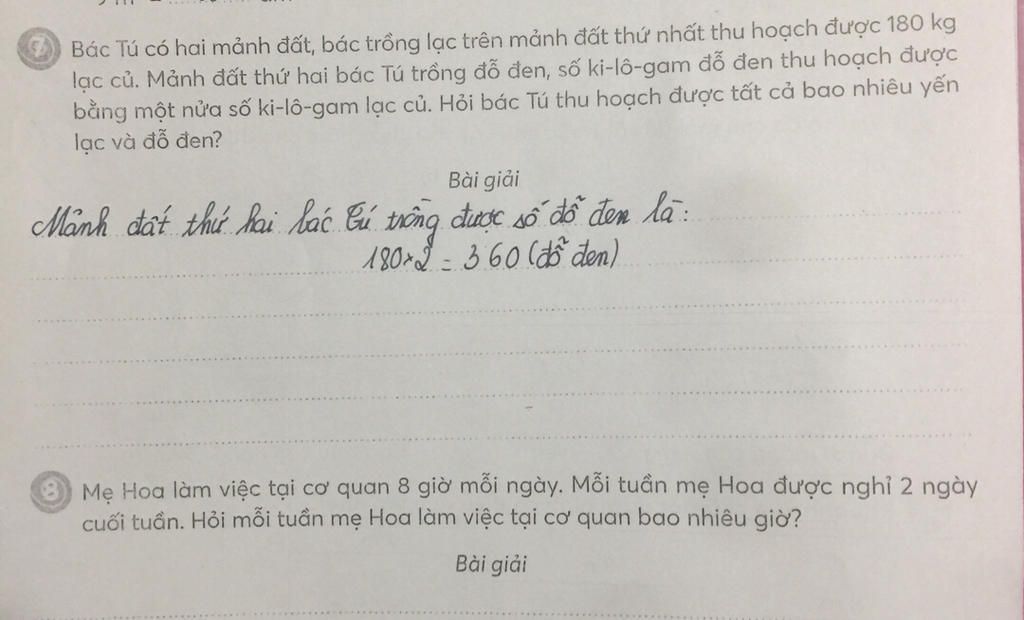 7 Bác Tú có hai mảnh đất, bác trồng lạc trên mảnh đất thứ nhất thu hoạch được 180 kg
lạc củ. Mảnh đất thứ hai bác Tú trồng đỗ đen, số ki-lô-gam đỗ đen thu hoạch được
bằng một nửa số ki-lô-gam lạc củ. Hỏi bác Tú thu hoạch được tất cả bao nhiêu yến
lạc và đỗ đen?
Bài giải
Mảnh đất thứ hai bác Tú trồng được số đỗ đen là:
180 × 2 = 360 (đỗ đen)
8 Mẹ Hoa làm việc tại cơ quan 8 giờ mỗi ngày. Mỗi tuần mẹ Hoa được nghỉ 2 ngày
cuối tuần. Hỏi mỗi tuần mẹ Hoa làm việc tại cơ quan bao nhiêu giờ?
Bài giải